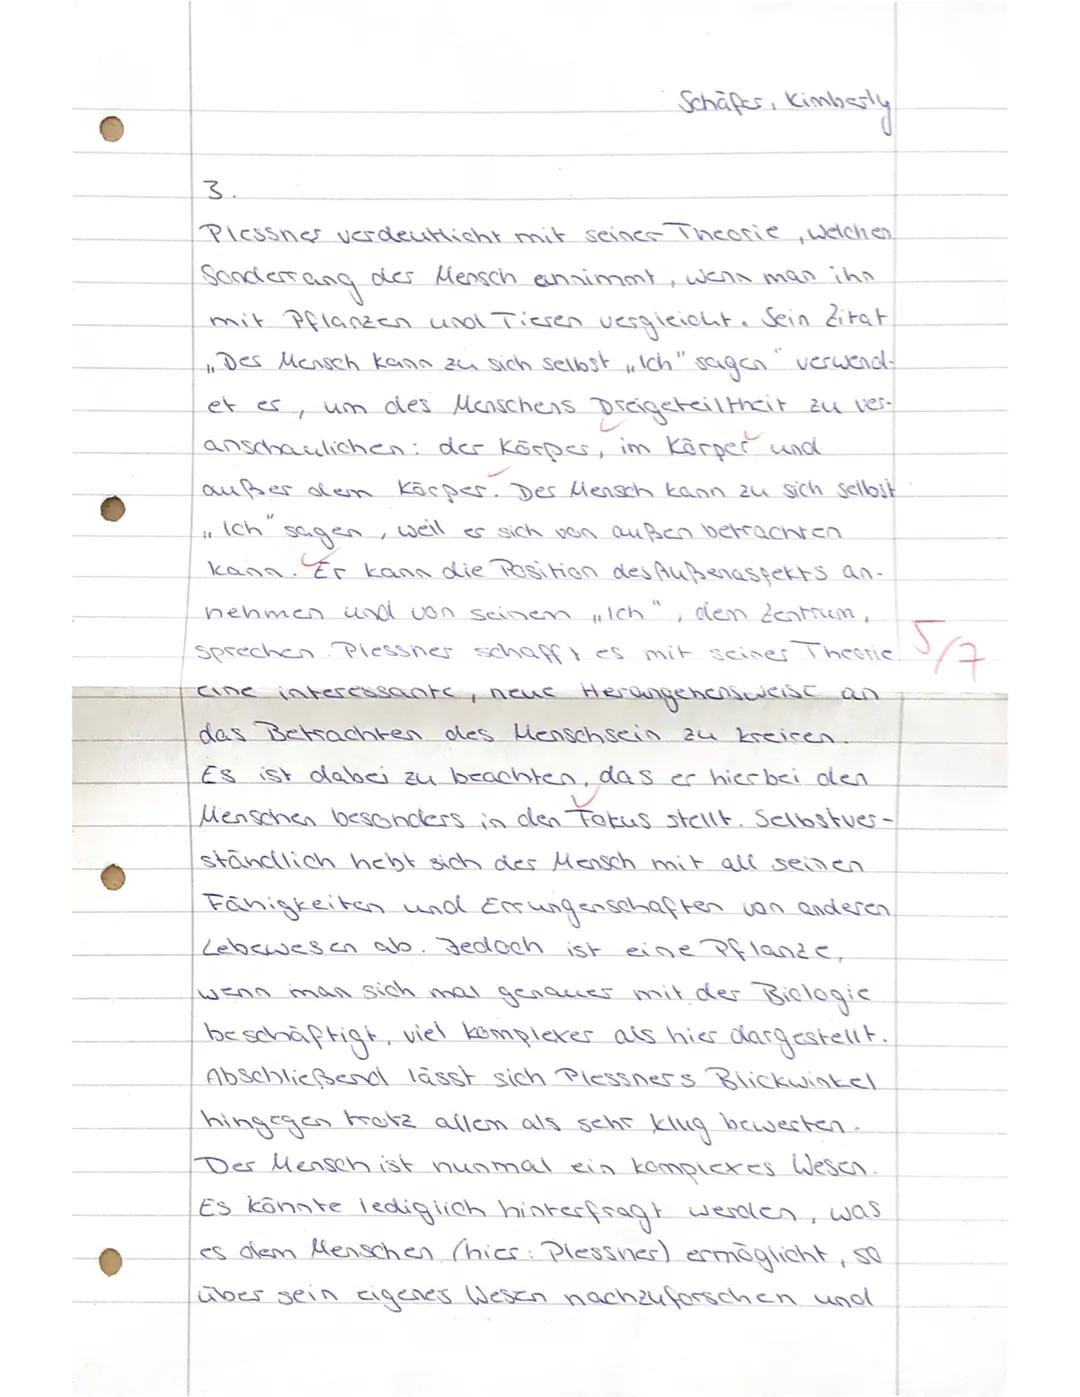 Schäfer, Kimberly
3.
Plessner verdeutlicht mit seiner Theorie, welchen
Sonderrang der Mensch annimmt, wenn man ihn
mit Pflanzen und Tieren vergleicht. Sein Zitat
„Der Mensch kann zu sich selbst „Ich" sagen" verwend-
et er, um des Menschens Dreigeteiltheit zu ver-
anschaulichen: der Körper, im Körper und
außer dem Körper. Der Mensch kann zu sich selbst
„Ich" sagen, weil er sich von außen betrachten
kann. Er kann die Position des Außenaspekts an-
nehmen und von seinem „Ich", dem Zentrum,
sprechen. Plessner schafft es mit seiner Theorie
5/7
eine interessante, neue Herangehensweise an
das Betrachten des Menschsein zu kreiren.
Es ist dabei zu beachten, das er hierbei den
Menschen besonders in den Fokus stellt. Selbstver-
ständlich hebt sich der Mensch mit all seinen
Fähigkeiten und Errungenschaften von anderen
Lebewesen ab. Jedoch ist eine Pflanze,
wenn man sich mal genauer mit der Biologie
beschäftigt, viel komplexer als hier dargestellt.
Abschließend lässt sich Plessners Blickwinkel
hingegen trotz allem als sehr klug bewerten.
Der Mensch ist nunmal ein komplexes Wesen.
Es könnte lediglich hinterfragt werden, was
es dem Menschen (hier: Plessner) ermöglicht, so
über sein eigenes Wesen nachzuforschen und